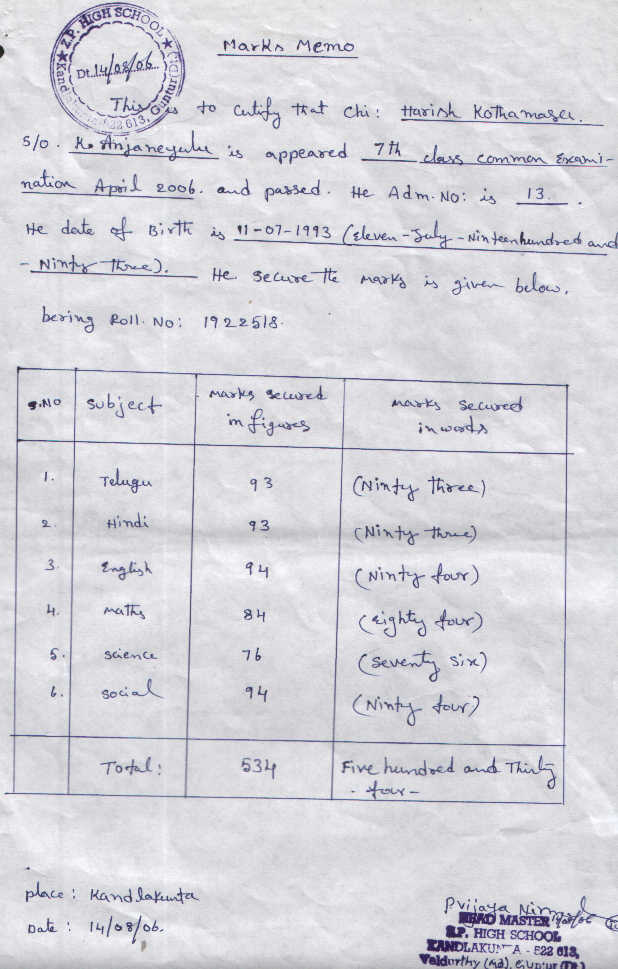 Z.P. HIGH SCHOOL
Dt. 14/08/06.
522 613, Guntur (Dt)
Marks Memo
This is to cutify that chi: Harish Kothamasu.
S/o. K. Anjaneyulu is appeared 7th class common Exami-
nation April 2006. and passed. He Adm. No: is 13.
He date of Birth is 11-07-1993 (Eleven-July-Ninteenhundred and
- Ninty three). He secure the marks is given below.
bering Roll. No: 1922518.
S.NO subject marks secured in figures marks secured in words
1. Telugu 93 (Ninty three)
2. Hindi 93 (Ninty three)
3. English 94 (Ninty four)
4. maths 84 (eighty four)
5. science 76 (seventy six)
6. social 94 (Ninty four)
Total: 534 Five hundred and Thirty
- four -
place: Kandlakunta
Date: 14/08/06.
HEAD MASTER
Z.P. HIGH SCHOOL
KANDLAKUNTA - 522 613,
Veldurthy (Md), Guntur (Dt.)